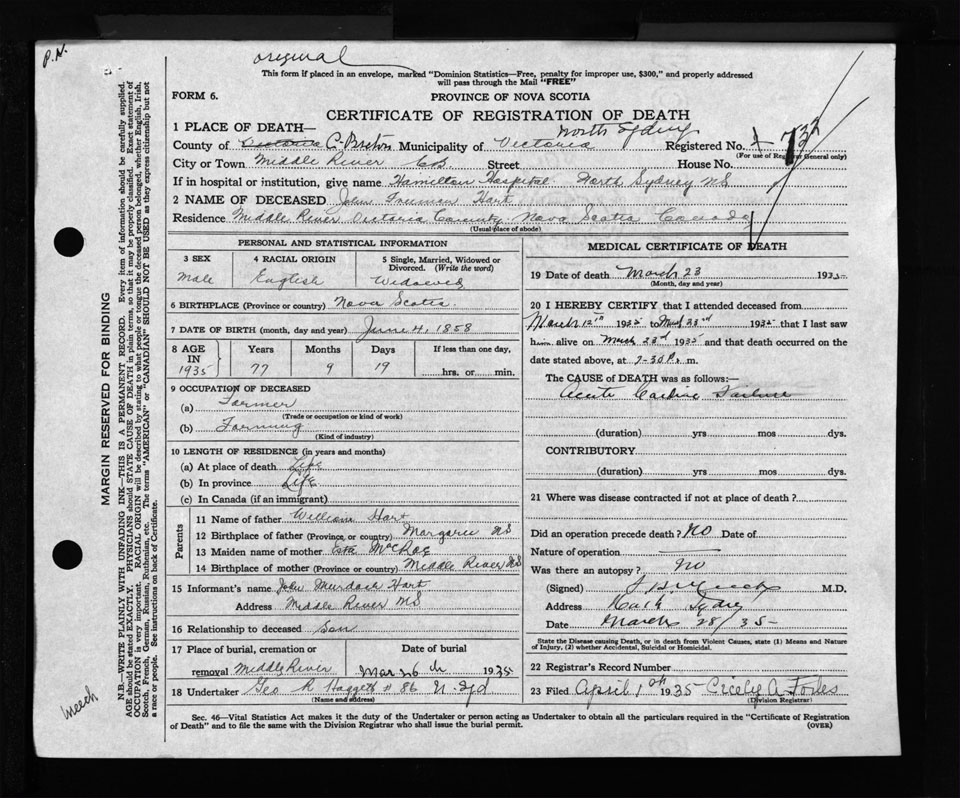 P.N.
original
This form if placed in an envelope, marked "Dominion Statistics—Free, penalty for improper use, $300," and properly addressed
will pass through the Mail "FREE"
FORM 6.
PROVINCE OF NOVA SCOTIA
CERTIFICATE OF REGISTRATION OF DEATH
1 PLACE OF DEATH— North Sydney
County of Victoria C-Breton Municipality of Victoria Registered No.
(For use of Registrar General only)
City or Town Middle River CB Street House No.
If in hospital or institution, give name Hamilton Hospital North Sydney NS
2 NAME OF DECEASED John Freeman Hart
Residence Middle River Victoria County Nova Scotia Canada
(Usual place of abode)
PERSONAL AND STATISTICAL INFORMATION
3 SEX 4 RACIAL ORIGIN 5 Single, Married, Widowed or
Divorced. (Write the word)
Male English Widowed
6 BIRTHPLACE (Province or country) Nova Scotia.
7 DATE OF BIRTH (month, day and year) June 4, 1858
8 AGE IN 1935 Years Months Days If less than one day,
77 9 19 hrs. or min.
9 OCCUPATION OF DECEASED
(a) Farmer
(Trade or occupation or kind of work)
(b) Farming
(Kind of industry)
10 LENGTH OF RESIDENCE (in years and months)
(a) At place of death Life
(b) In province Life
(c) In Canada (if an immigrant)
Parents
11 Name of father William Hart
12 Birthplace of father (Province, or country) Margaree NS
13 Maiden name of mother McRae
14 Birthplace of mother (Province or country) Middle River NS
15 Informant's name John Murdoch Hart
Address Middle River NS
16 Relationship to deceased Son
17 Place of burial, cremation or Date of burial
removal Middle River Mar 26th 1935
18 Undertaker Geo R
(Name and address)
MEDICAL CERTIFICATE OF DEATH
19 Date of death March 23 1935
(Month, day and year)
20 I HEREBY CERTIFY that I attended deceased from
March 12th 1935 to 23rd 1935 that I last saw
him alive on March 23rd 1935 and that death occurred on the
date stated above, at 7-30 P. m.
The CAUSE of DEATH was as follows:—
Acute Cardiac Failure
(duration) yrs mos dys.
CONTRIBUTORY
(duration) yrs mos dys.
21 Where was disease contracted if not at place of death?
Did an operation precede death? No Date of
Nature of operation
Was there an autopsy? No
(Signed) M.D.
Address North Sydney
Date March 28/35
State the Disease causing Death, or in death from Violent Causes, state (1) Means and Nature
of Injury, (2) whether Accidental, Suicidal or Homicidal.
22 Registrar's Record Number
23 Filed April 1935 Cicely A Forbes
(Division Registrar)
Sec. 46—Vital Statistics Act makes it the duty of the Undertaker or person acting as Undertaker to obtain all the particulars required in the "Certificate of Registration
of Death" and to file the same with the Division Registrar who shall issue the burial permit. (OVER)
MARGIN RESERVED FOR BINDING
N.B.—WRITE PLAINLY WITH UNFADING INK—THIS IS A PERMANENT RECORD. Every item of information should be carefully supplied.
AGE should be stated EXACTLY. PHYSICIANS should STATE CAUSE OF DEATH in plain terms, so that it may be properly classified. Exact statement of
OCCUPATION is very important. RACIAL ORIGIN will be described by stating to what people or tongue the deceased person belonged, whether English, Irish,
Scotch, French, German, Russian, Ruthenian, etc. The terms "AMERICAN" or "CANADIAN" SHOULD NOT BE USED as they express citizenship but not
a race or people. See instructions on back of Certificate.